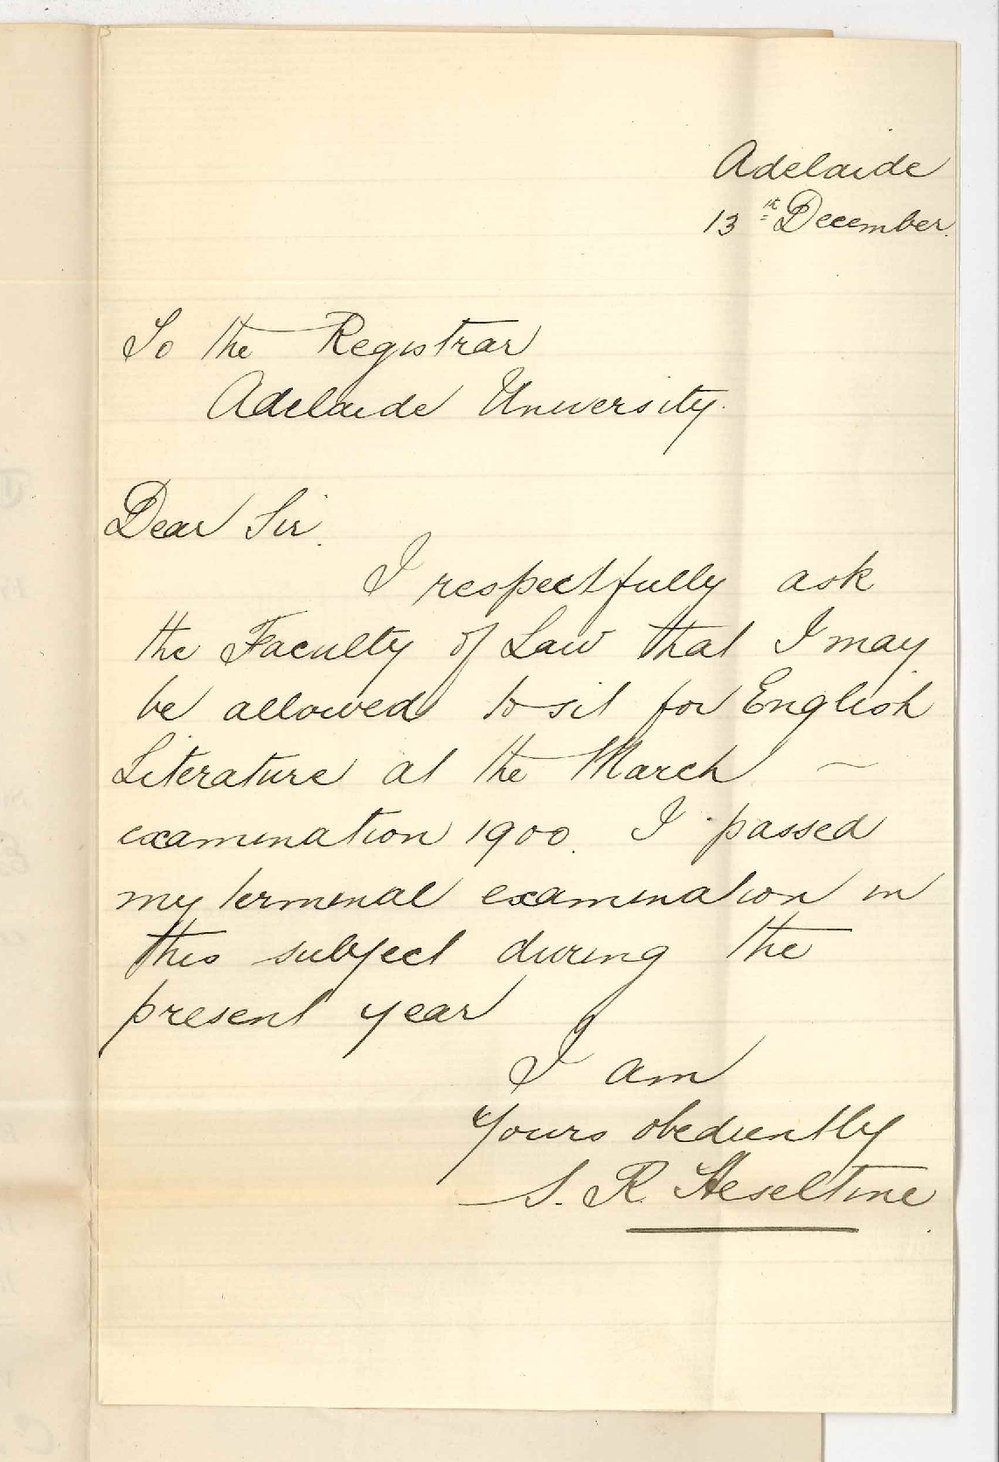 Adelaide
13th December.
To the Registrar
Adelaide University.
Dear Sir.
I respectfully ask
the Faculty of Law that I may
be allowed to sit for English
Literature at the March ~
examination 1900. I passed
my terminal examination in
this subject during the
present year
I am
Yours obediently
S. R. Heseltine.